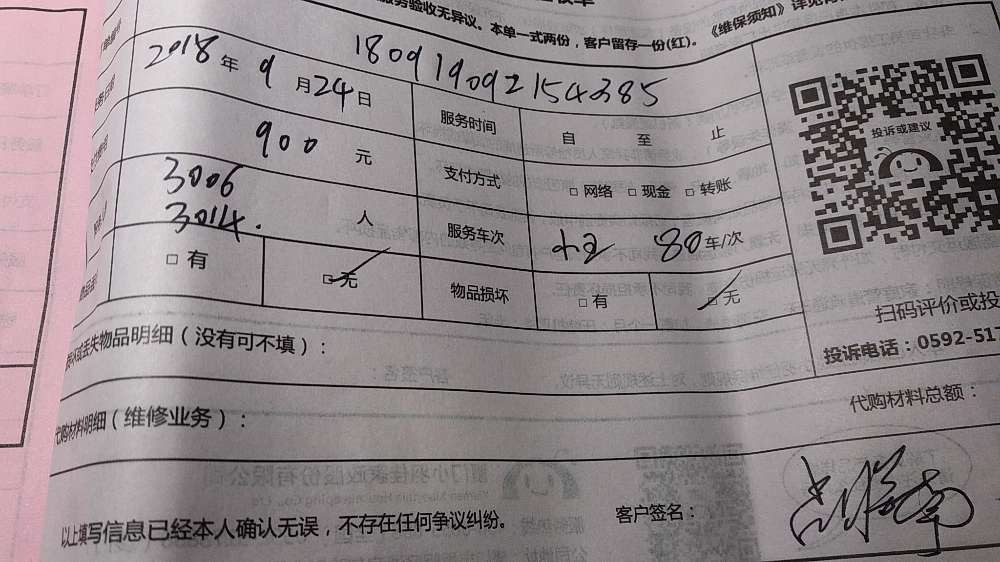 服务验收无异议。本单一式两份，客户留存一份(红)。《维保须知》详见
180919092154385
2018 年 9 月 24 日 服务时间 自 至 止
900 元 支付方式 □ 网络 □ 现金 □ 转账
3006
3014. 人 服务车次 80 车/次
□ 有 □ 无 物品损坏 □ 有 □ 无
投诉或建议
扫码评价或投
投诉电话：0592-51
丢失物品明细（没有可不填）：
代购材料明细（维修业务）： 代购材料总额：
以上填写信息已经本人确认无误，不存在任何争议纠纷。 客户签名：